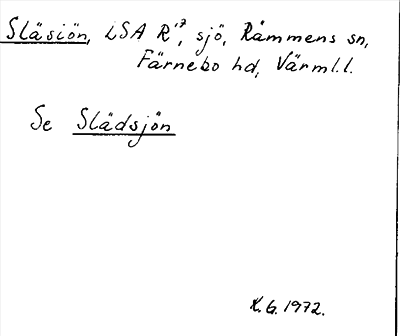 Släsiön, LSA R¹⁷, sjö, Rämmens sn,
Färnebo hd, Värml.l.
Se Slädsjön
K.G. 1972.